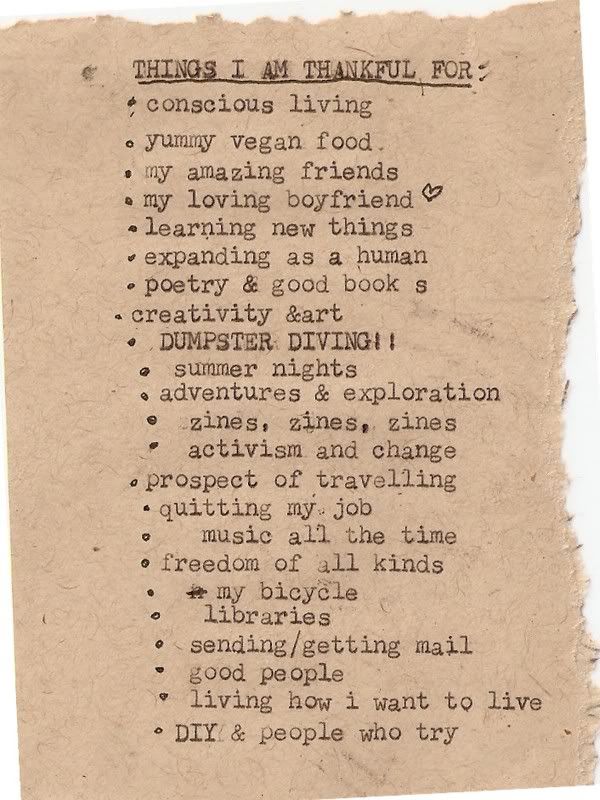 THINGS I AM THANKFUL FOR:
• conscious living
• yummy vegan food.
• my amazing friends
• my loving boyfriend ♡
• learning new things
• expanding as a human
• poetry & good book s
• creativity &art
• DUMPSTER DIVING!!
• summer nights
• adventures & exploration
• zines, zines, zines
• activism and change
• prospect of travelling
• quitting my job
• music all the time
• freedom of all kinds
• my bicycle
• libraries
• sending/getting mail
• good people
• living how i want to live
• DIY & people who try